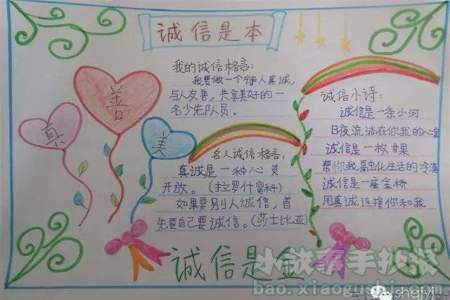 诚信是本
我的诚信格言:
我要做一个待人真诚,
与人友善,共享美好的一
名少先队员。
真
善
美
名人诚信格言:
真诚是一种心灵
开放。(拉罗什富科)
如果要别人诚信,首
先要自己要诚信。(莎士比亚)
诚信小诗:
诚信是一条小河
日夜流淌在你我的心
诚信是一枚
诚信是一座金桥
用真诚连接你和我
诚信是金
小伙家手抄报